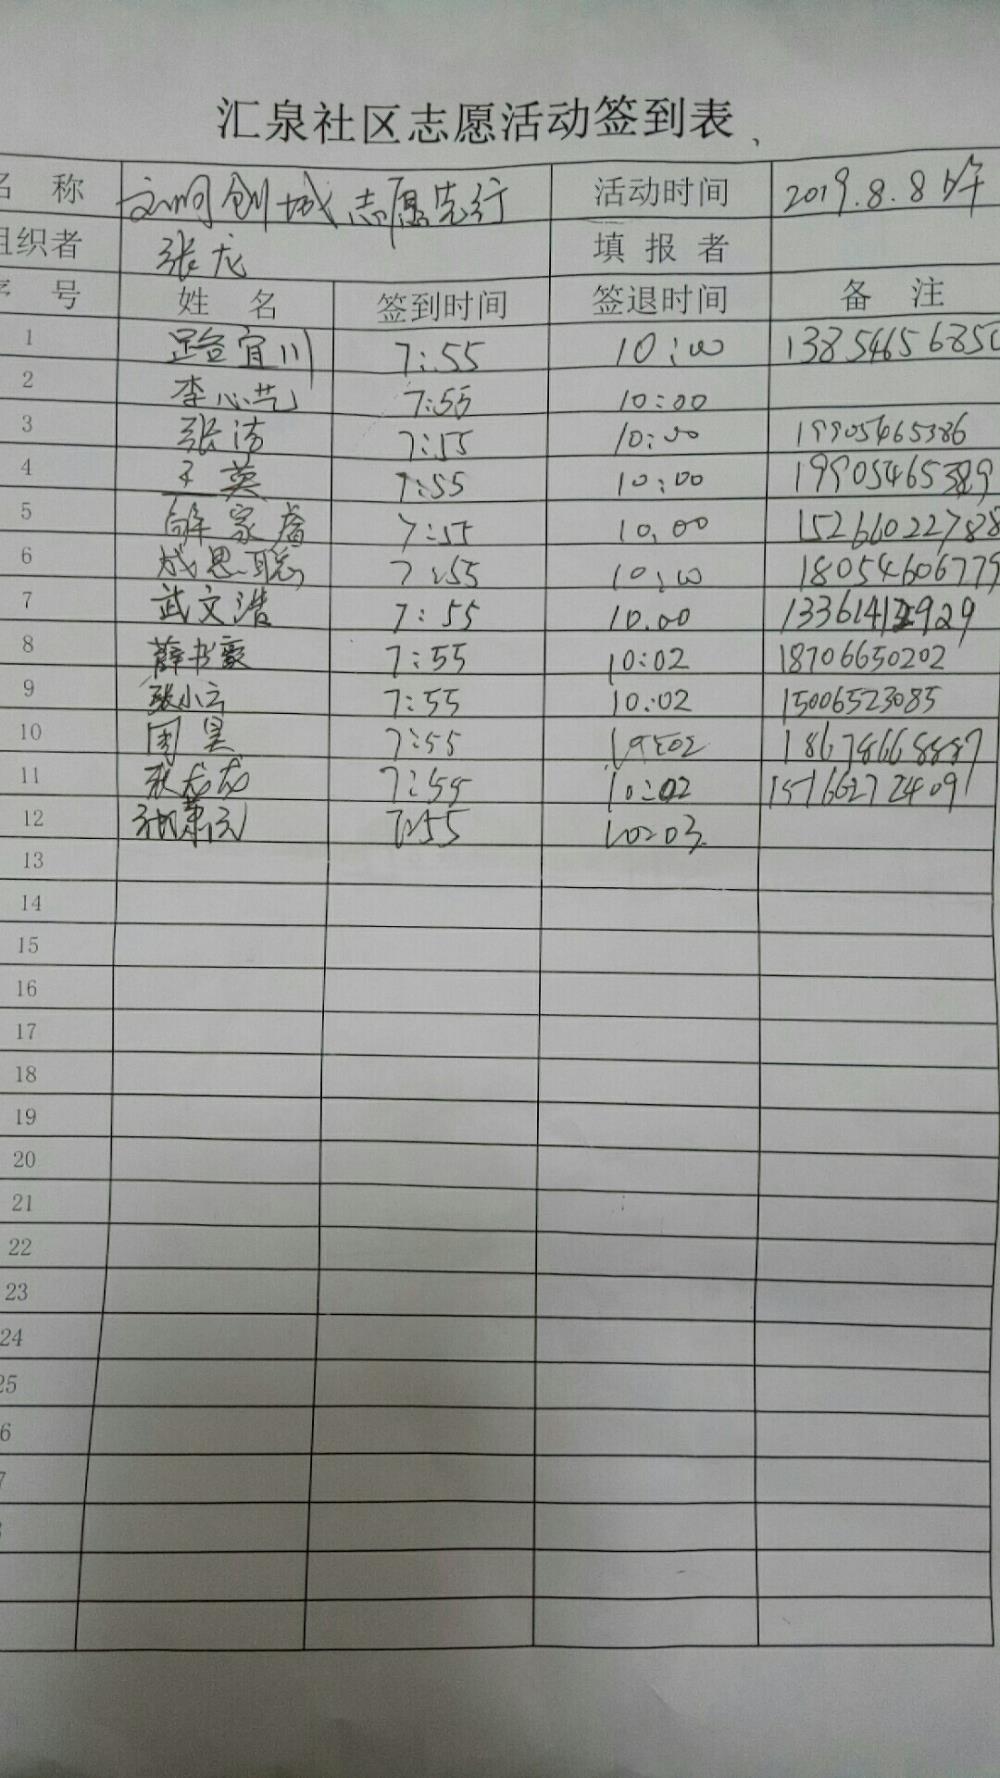 汇泉社区志愿活动签到表
名 称 文明创城 志愿先行 活动时间 2019.8.8 上午
组织者 张龙 填报者
序 号 姓 名 签到时间 签退时间 备 注
1 路宜川 7:55 10:00 1385465685
2 李心艺 7:55 10:00
3 张洁 7:55 10:00 19905465386
4 王英 7:55 10:00 19905465389
5 家 7:55 10.00 15266022788
6 成思聪 7:55 10:00 18054606779
7 武文浩 7:55 10.00 1336141 929
8 薛书豪 7:55 10:02 18706650202
9 张小云 7:55 10:02 15006523085
10 周昊 7:55 10:02 18678668887
11 张龙龙 7:55 10:02 15166272409
12 7:55 10:03
13
14
15
16
17
18
19
20
21
22
23
24
25
6
7